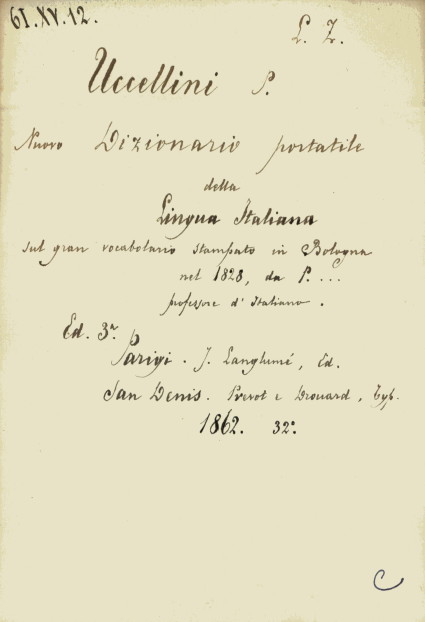 61.XV.12.
L. Z.
Uccellini P.
Nuovo Dizionario portatile
della
Lingua Italiana
sul gran vocabolario stampato in Bologna
nel 1828, da P. ...
professore d' Italiano.
Ed. 3ª.
Parigi. J. Langlumé, Ed.
San Denis. Prevot e Drouard, Typ.
1862. 32°.
C